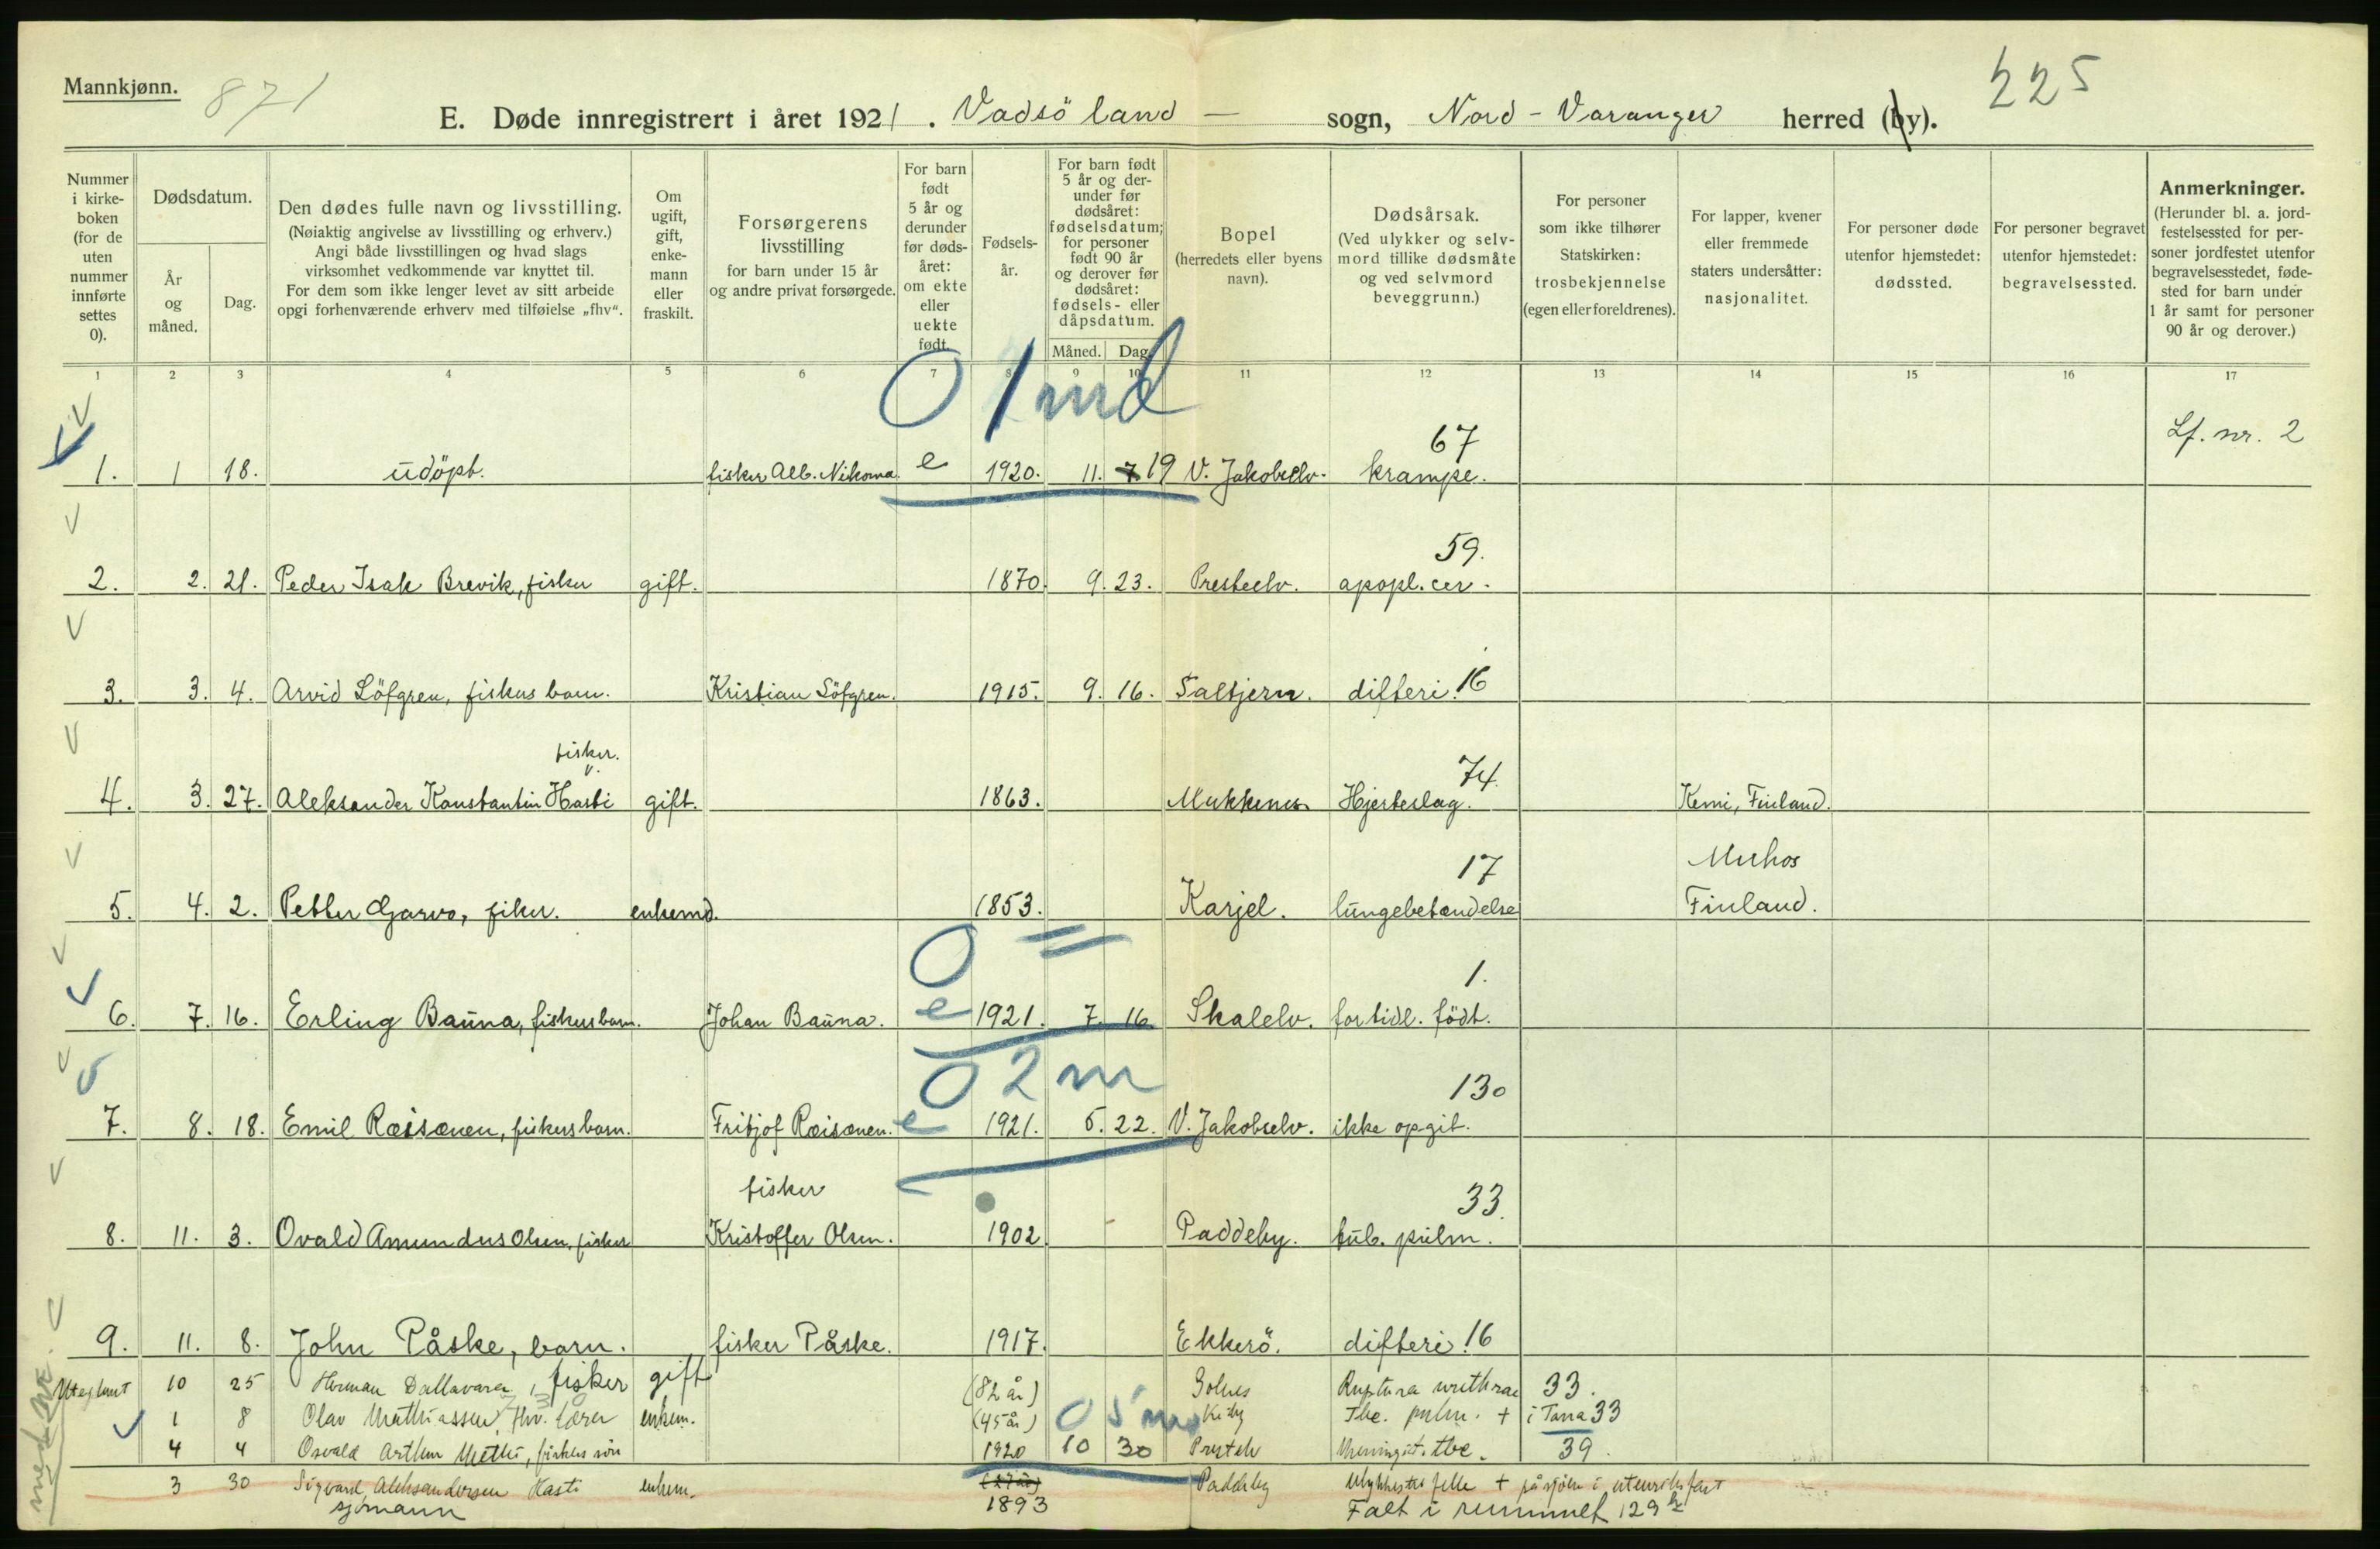 Mannkjønn.
871
225
E. Døde innregistrert i året 1921. Vadsö land — sogn, Nord-Varanger herred (by).
Nummer i kirkeboken (for de uten nummer innførte settes 0).
Dødsdatum.
År og måned.
Dag.
Den dødes fulle navn og livsstilling.
(Nøiaktig angivelse av livsstilling og erhverv.)
Angi både livsstillingen og hvad slags
virksomhet vedkommende var knyttet til.
For dem som ikke lenger levet av sitt arbeide
opgi forhenværende erhverv med tilføielse „fhv“.
Om ugift, gift, enkemann eller fraskilt.
Forsørgerens livsstilling
for barn under 15 år
og andre privat forsørgede.
For barn født 5 år og derunder før dødsåret: om ekte eller uekte født.
Fødselsår.
For barn født 5 år og derunder før dødsåret: fødselsdatum; for personer født 90 år og derover før dødsåret: fødsels- eller dåpsdatum.
Måned. Dag.
Bopel
(herredets eller byens navn).
Dødsårsak.
(Ved ulykker og selvmord tillike dødsmåte og ved selvmord beveggrunn.)
For personer som ikke tilhører Statskirken: trosbekjennelse (egen eller foreldrenes).
For lapper, kvener eller fremmede staters undersåtter: nasjonalitet.
For personer døde utenfor hjemstedet: dødssted.
For personer begravet utenfor hjemstedet: begravelsessted.
Anmerkninger.
(Herunder bl. a. jordfestelsessted for personer jordfestet utenfor begravelsesstedet, fødested for barn under 1 år samt for personer 90 år og derover.)
1 2 3 4 5 6 7 8 9 10 11 12 13 14 15 16 17
0 1 md
67
Lf. nr. 2
1. 1 18. udöpt. fisker Alb. Nikoma e 1920. 11. 7 19 V. Jakobselv. krampe.
59.
2. 2. 21. Peder Isak Brevik, fisker gift. 1870. 9. 23. Presteelv. apopl. cer.
3. 3. 4. Arvid Löfgren, fiskers barn. Kristian Löfgren. 1915. 9. 16. Saltjern. difteri. 16
fisker.
74.
4. 3. 27. Aleksander Konstantin Hasti gift. 1863. Mukkenes Hjerteslag. Kemi, Finland.
17 Muhos
5. 4. 2. Petter Garvo, fiker. enkemd. 1853. Karjel. lungebetændelse Finland.
0 =
1.
6. 7. 16. Erling Bauna, fiskersbarn. Johan Bauna. e 1921. 7. 16 Skalelv. for tidl. födt.
0 2 m
130
7. 8. 18. Emil Ræisænen, fiskersbarn. Fritjof Ræisænen. e 1921. 5. 22. V. Jakobselv. ikke opgit.
fisker
33.
8. 11. 3. Ovald Amundus Olsen, fisker Kristoffer Olsen. 1902 Paddeby. tub. pulm.
9. 11. 8. John Påske, barn. fisker Påske. 1917. Ekkerö. difteri. 16
Uteglemt 10 25 Herman Dallavara, fisker gift (82 år) Golnes Ruptura urethrae 33.
1 8 Olav Mathiassen, fhv. lærer enkem. (45 år) 0 5 m Kiby Tbc. pulm. + i Tana 33
4 4 Osvald Arthur Methi, fiskers sön 1920 10 30 Prestelv Meningit. tbc. 39.
3 30 Sigvard Aleksandersen Hasti enkem. (27 år) Paddeby Ulykkestilfelle + på sjöen i utenriksfart
sjömann 1893 Falt i rummet 129